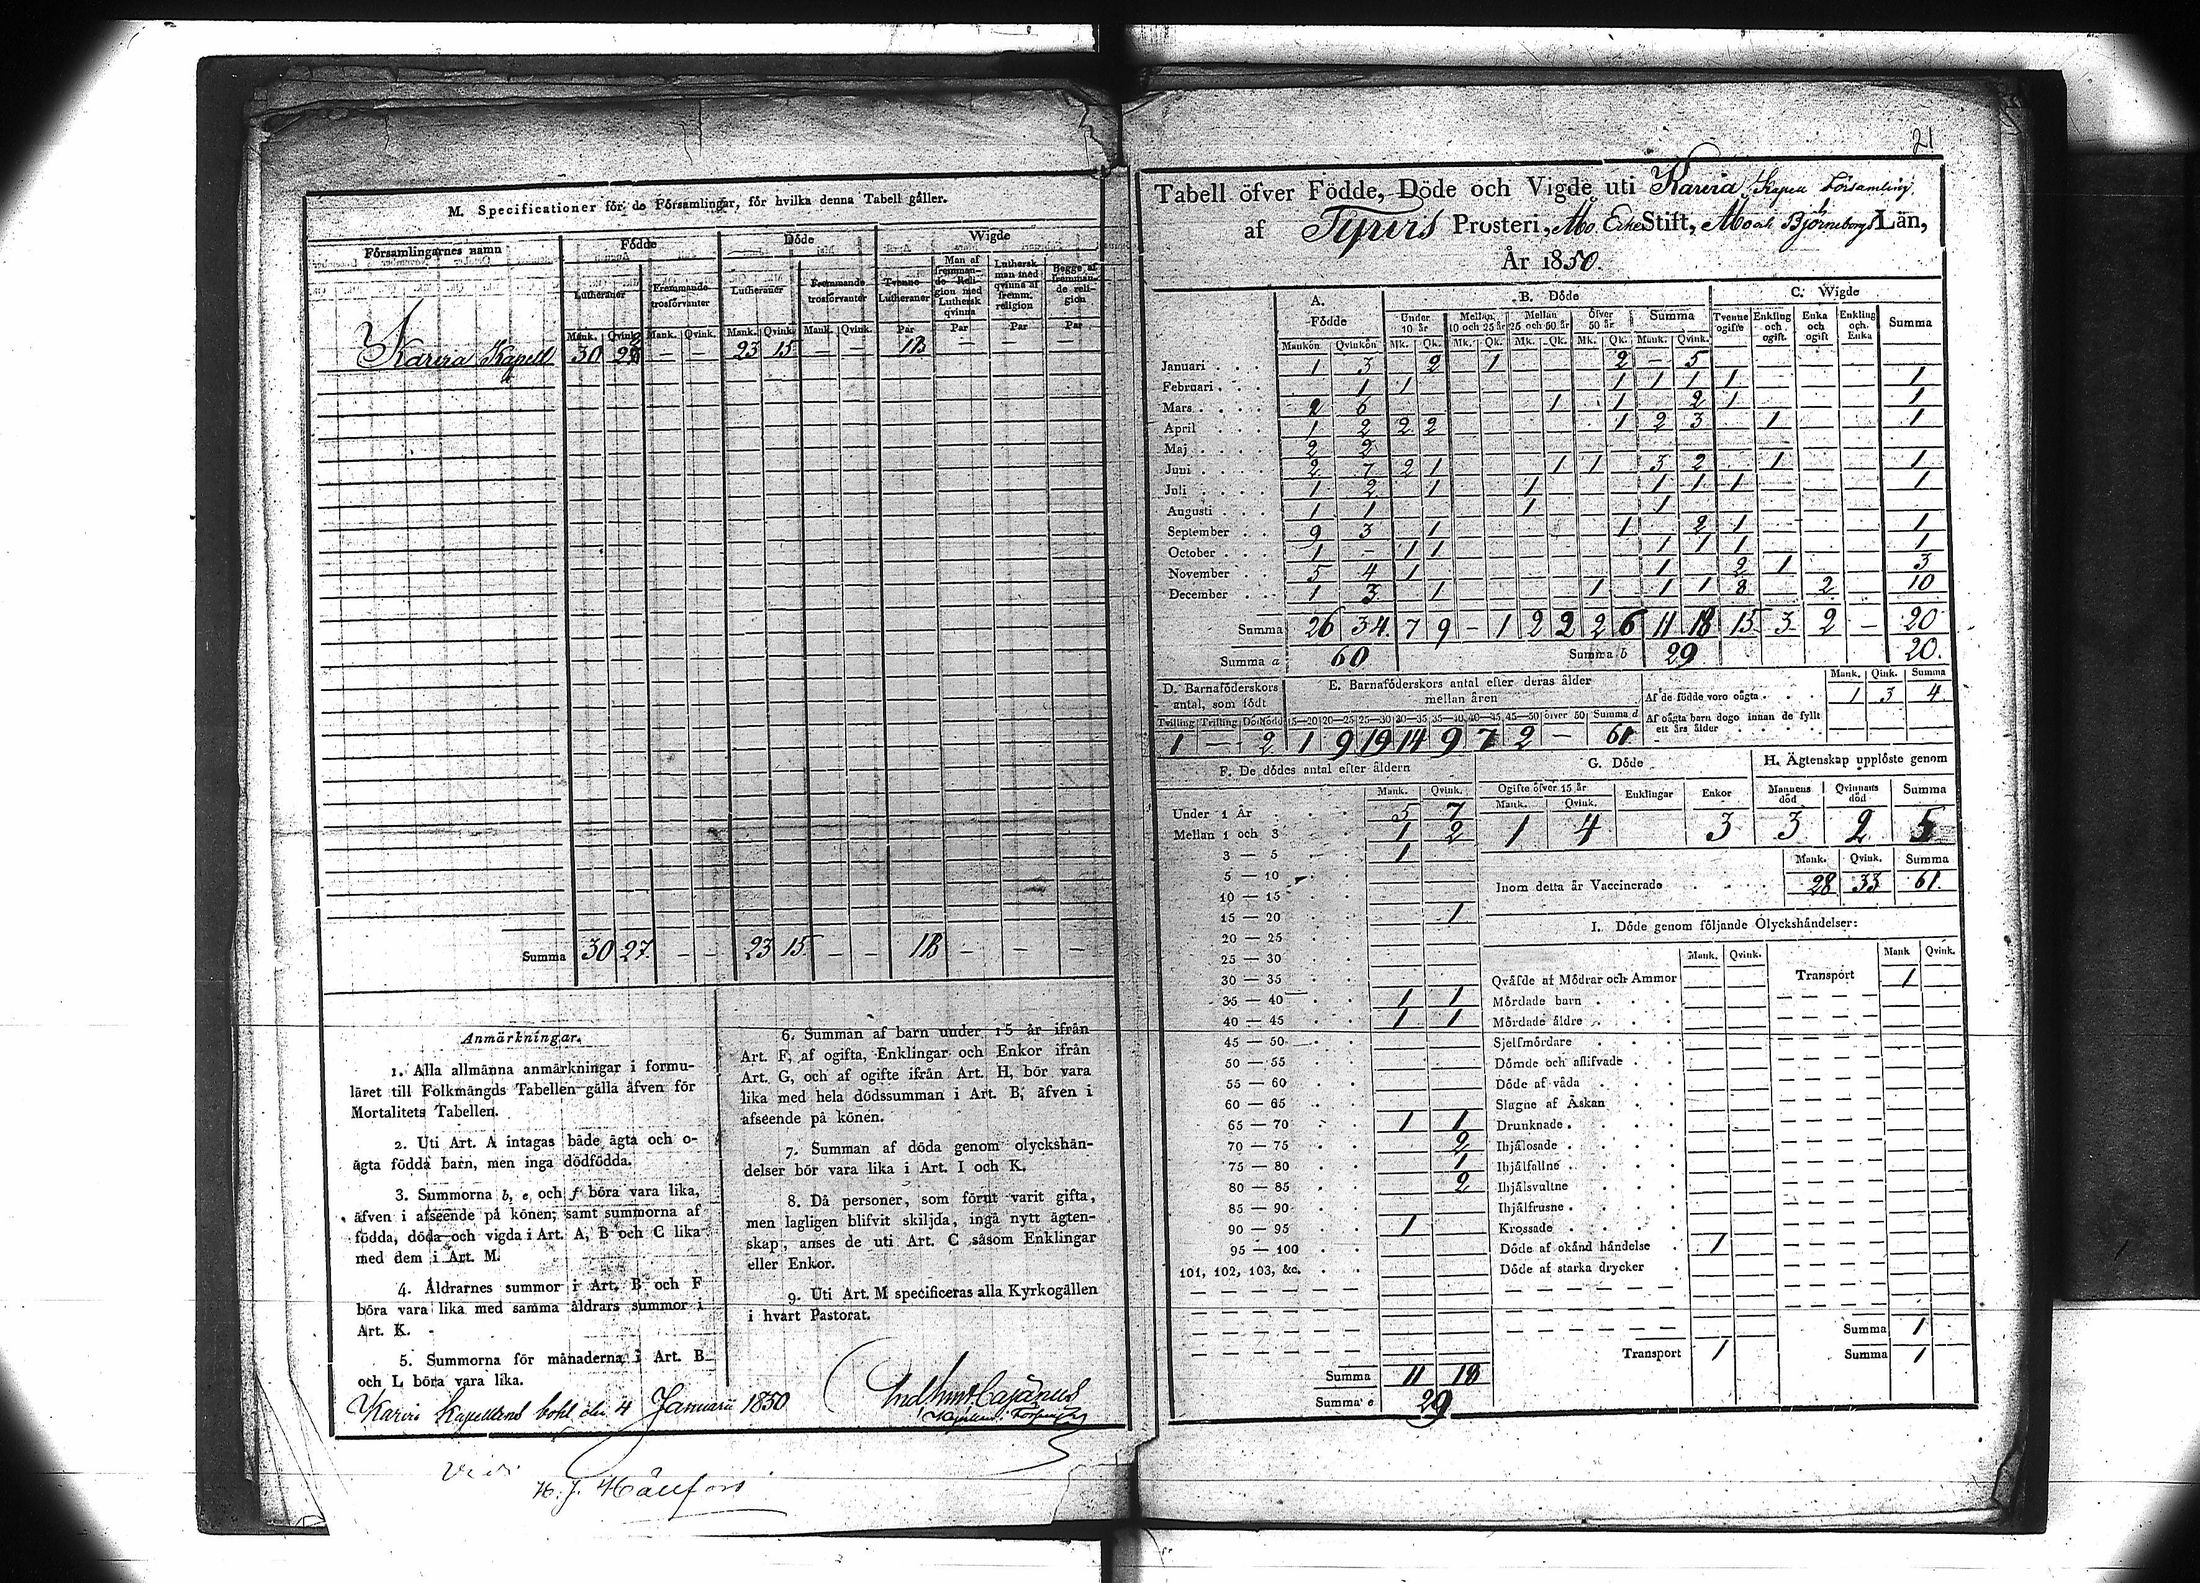 M. Specificationer för de Församlingar, för hvilka denna Tabell gäller.
Församlingarnes namn | Födde | Döde | Wigde
Lutheraner | Fremmande trosförvanter | Lutheraner | Fremmande trosförvanter | Tvenne Lutheraner | Man af fremmande Religion med Luthersk qvinna | Luthersk man med qvinna af fremm. religion | Begge af fremmande religion
Mank. | Qvink. | Mank. | Qvink. | Mank. | Qvink. | Mank. | Qvink. | Par | Par | Par | Par
Karvia Kapell 30 27 — — 23 15 — — 18 — — —
Summa 30 27. — — 23 15. — — 18 — — —
Anmärkningar.
1. Alla allmänna anmärkningar i formu-
läret till Folkmängds Tabellen gälla äfven för
Mortalitets Tabellen.
2. Uti Art. A intagas både ägta och o-
ägta födda barn, men inga dödfödda.
3. Summorna b, e, och f böra vara lika,
äfven i afseende på könen; samt summorna af
födda, döda och vigda i Art. A, B och C lika
med dem i Art. M.
4. Åldrarnes summor i Art. B och F
böra vara lika med samma åldrars summor i
Art. K.
5. Summorna för månaderna i Art. B
och L böra vara lika.
6. Summan af barn under 15 år ifrån
Art. F, af ogifta, Enklingar och Enkor ifrån
Art. G, och af ogifte ifrån Art. H, bör vara
lika med hela dödssumman i Art. B, äfven i
afseende på könen.
7. Summan af döda genom olyckshän-
delser bör vara lika i Art. I och K.
8. Då personer, som förut varit gifta,
men lagligen blifvit skiljda, ingå nytt ägten-
skap, anses de uti Art. C såsom Enklingar
eller Enkor.
9. Uti Art. M specificeras alla Kyrkogällen
i hvart Pastorat.
den 4 Januarii 1850
Cajanus
Vidi
H. J.
21
Tabell öfver Födde, Döde och Vigde uti Karvia Kapell Församling,
af Tyrvis Prosteri, Åbo Erke Stift, Åbo och Björneborgs Län,
År 1850.
A. Födde | B. Döde | C. Wigde
Under 10 år | Mellan 10 och 25 år | Mellan 25 och 50 år | Öfver 50 år | Summa | Tvenne ogifte | Enkling och ogift. | Enka och ogift | Enkling och Enka | Summa
Mankön | Qvinkön | Mk. | Qk. | Mk. | Qk. | Mk. | Qk. | Mk. | Qk. | Mank. | Qvink.
Januari . . . 1 3 2 1 2 — 5
Februari . . . 1 1 1 1 1 1 1
Mars . . . . 2 6 1 1 2 1 1
April . . . 1 2 2 2 1 2 3 1 1
Maj . . . . 2 2
Juni . . . . 2 7 2 1 1 1 3 2 1 1
Juli . . . . 1 2 1 1 1 1 1 1
Augusti . . . 1 1 1 1
September . . 9 3 1 1 2 1 1
October . . . 1 — 1 1 1 1 1 1
November . . 5 4 1 1 2 1 3
December . . . 1 3 1 1 1 1 8 2 10
Summa 26 34. 7 9 — 1 2 2 2 6 11 18 15 3 2 — 20
Summa a 60 Summa b 29 20.
D. Barnaföderskors antal, som födt | E. Barnaföderskors antal efter deras ålder mellan åren | Mank. | Qink. | Summa
Af de födde voro oägta . . . 1 3 4
Tvilling | Trilling | Dödfödd | 15—20 | 20—25 | 25—30 | 30—35 | 35—40 | 40—45 | 45—50 | öfver 50 | Summa d
Af oägta barn dogo innan de fyllt
ett års ålder . . . . .
1 — 2 1 9 19 14 9 7 2 — 61
F. De dödes antal efter åldern
Mank. | Qvink.
Under 1 År . . . 5 7
Mellan 1 och 3 1 2
3 — 5 1
5 — 10
10 — 15
15 — 20 1
20 — 25
25 — 30
30 — 35
35 — 40 1 1
40 — 45 1 1
45 — 50
50 — 55
55 — 60
60 — 65
65 — 70 1 1
70 — 75 2
75 — 80 1
80 — 85 2
85 — 90
90 — 95 1
95 — 100
101, 102, 103, &c.
Summa 11 18
Summa e 29
G. Döde | H. Ägtenskap upplöste genom
Ogifte öfver 15 år | Enklingar | Enkor | Mannens död | Qvinnans död | Summa
Mank. | Qvink.
1 4 3 3 2 5
Mank. | Qvink. | Summa
Inom detta år Vaccinerade . . . . 28 33 61.
I. Döde genom följande Olyckshändelser:
Mank. | Qvink. | Transport | Mank | Qvink.
Qväfde af Mödrar och Ammor 1
Mördade barn . . .
Mördade äldre . . .
Sjelfmördare . . .
Dömde och aflifvade . .
Döde af våda . . .
Slagne af Åskan . .
Drunknade . . . .
Ihjälosade . . . .
Ihjälfallne . . . .
Ihjälsvaltne . . .
Ihjälfrusne . . . .
Krossade . . . .
Döde af okänd händelse . 1
Döde af starka drycker .
Summa 1
Transport 1 Summa 1